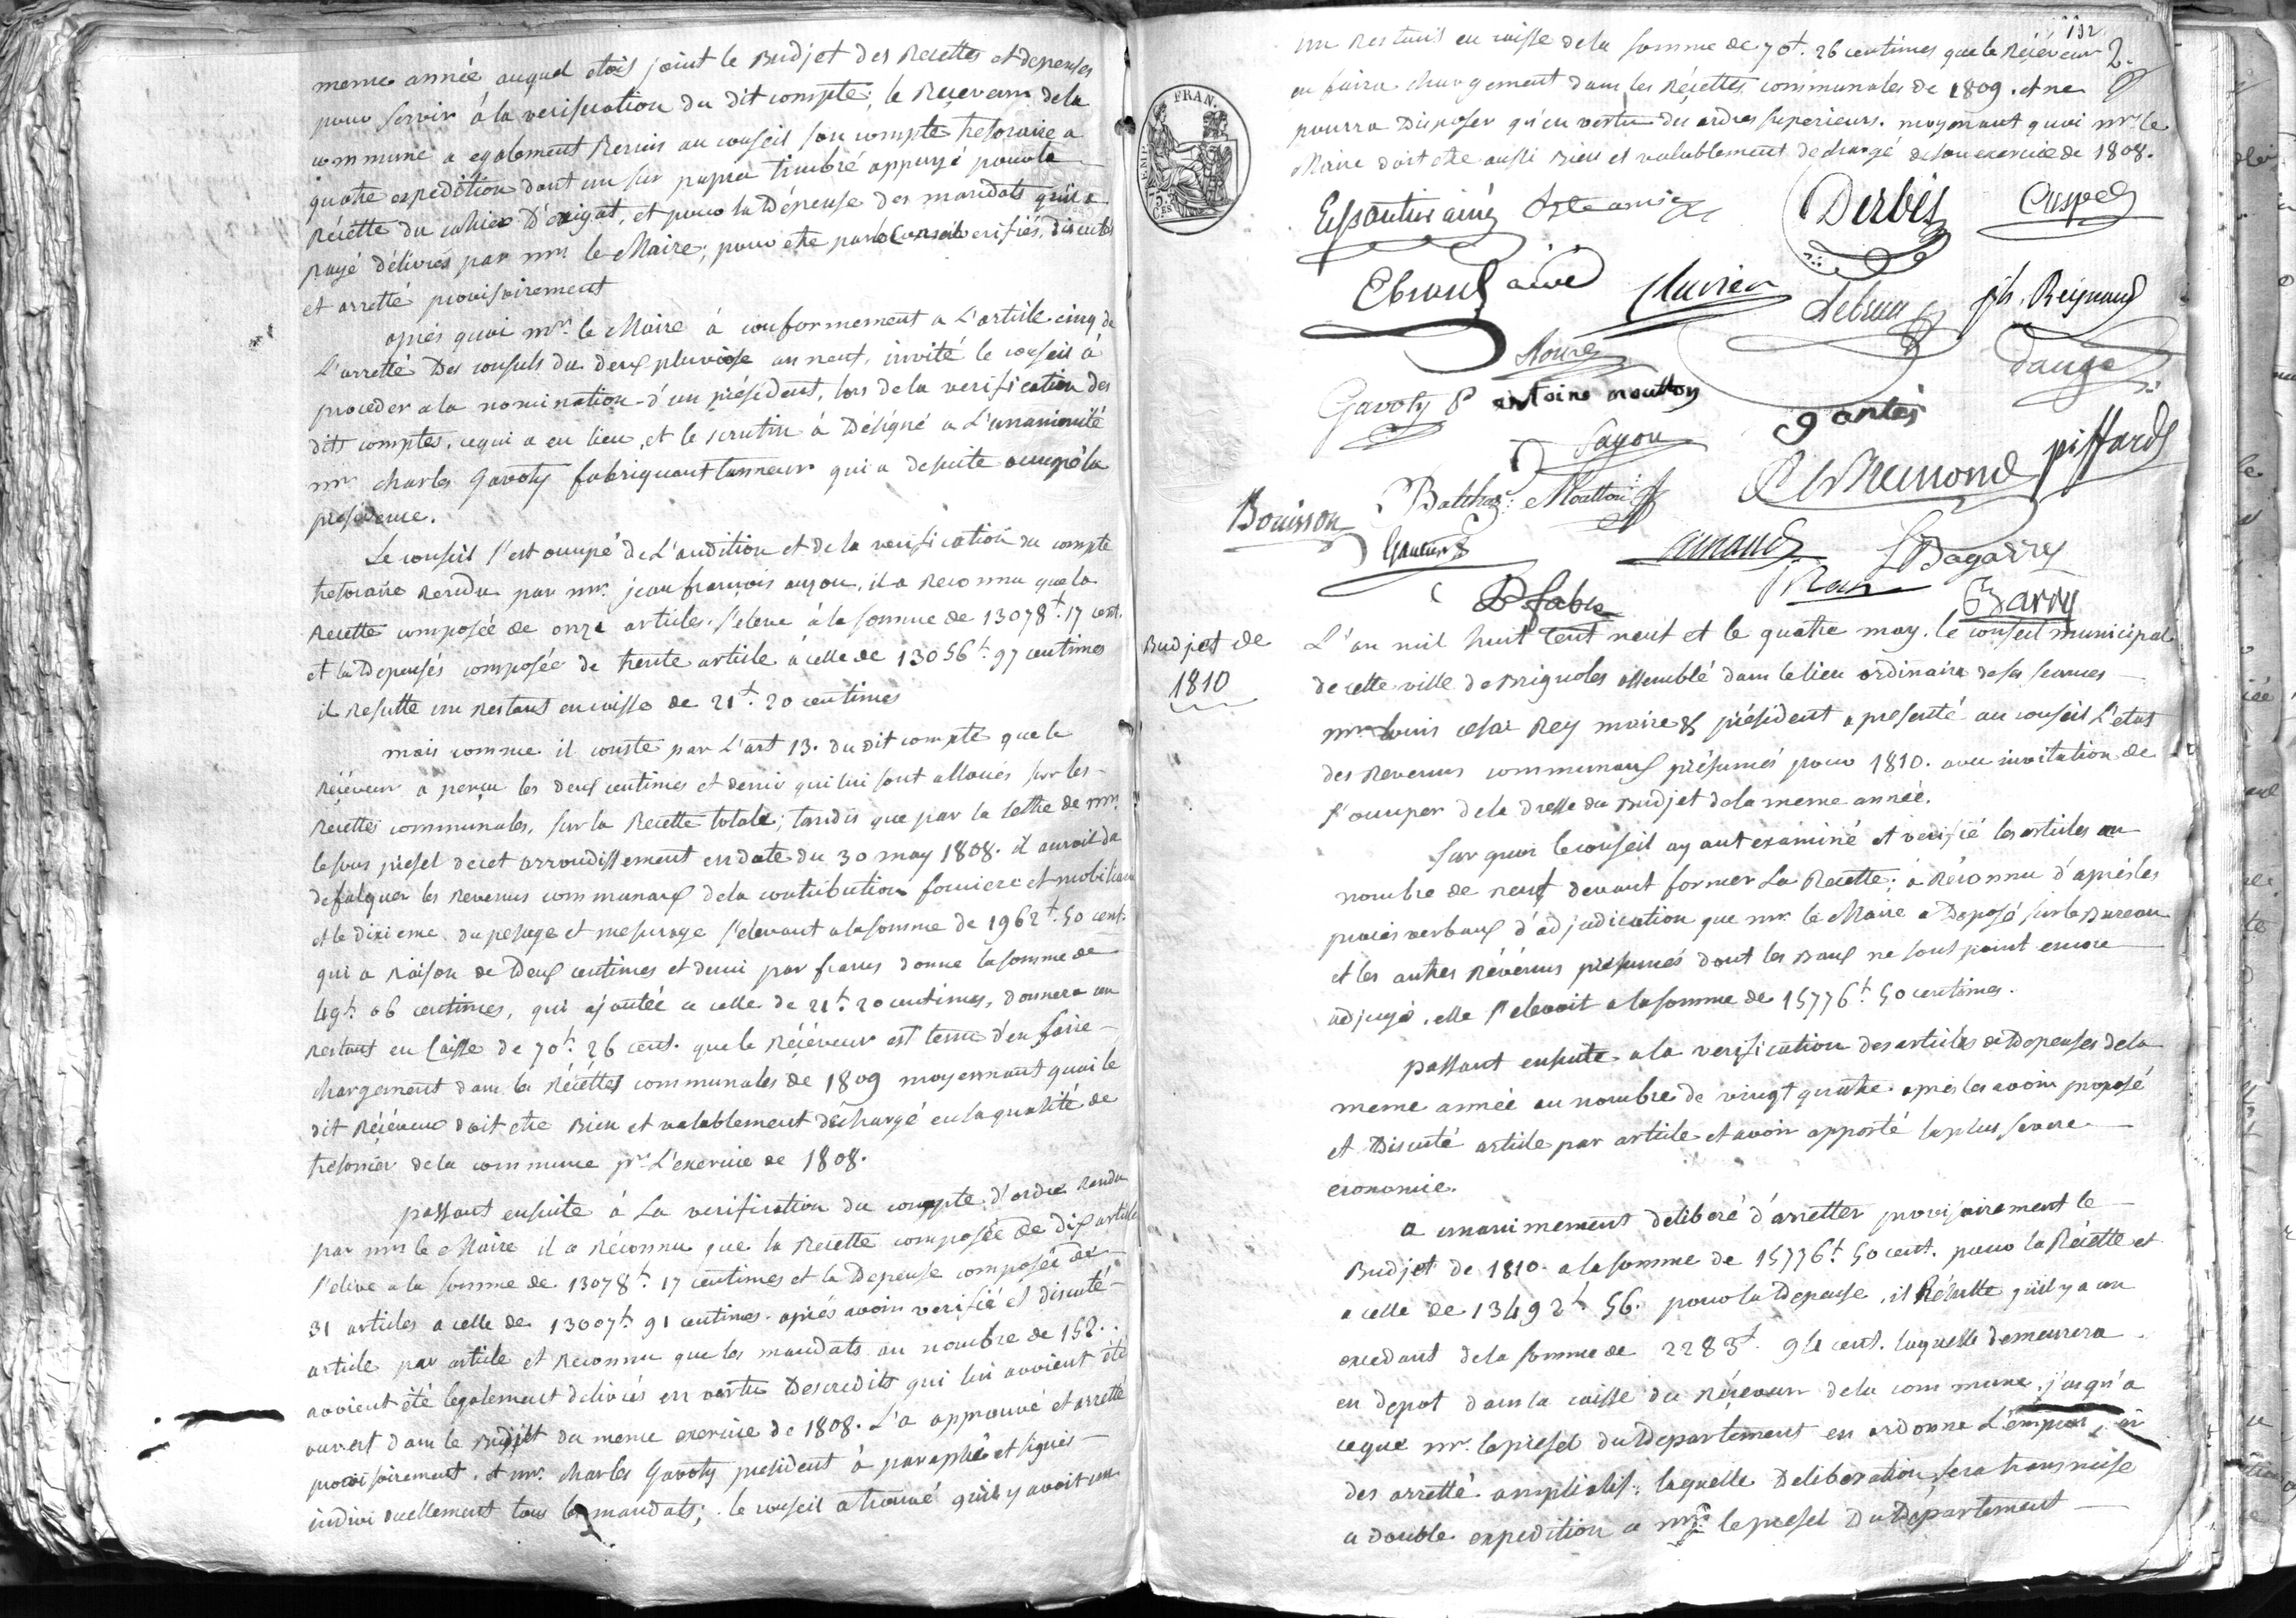 meme année auquel etois joint le Budjet des Recettes et depenses
pour servir à la verification du dit compte; le Receveur dela
commune a egalement Remis au conseil son compte tresoraire a
quatre expedition dont un sur papier timbré appuyé pour la
Récette du cahier D'exigat, et pour la Dépense des mandats qu'il a
payé délivrés par mr le Maire, pour etre par le Conseil verifiés, discutés
et arretté provisoirement
après quoi mr. le Maire à conformement a L'article cinq de
L'arretté Des consuls du deux pluviose an neuf, invité le conseil à
proceder a la nomination d'un président, lors dela verification des
dits comptes, cequi a eu lieu, et le scrutin à Désigné a L'unanimité
mr charles Gavoty fabriquant tanneur qui a desuite occupé la
présidence.
Le conseil s'est occupé de L'audition et dela verification du compte
tresoraire Rendu par mr. jean françois auzou, il a Reconnu que la
Recette composée de onze articles s'eleve à la somme de 13078t. 17 cent.
et la Depenses composée de trente article à celle de 13056t. 97 centimes
il Resulte un Restant en caisse de 21t. 20 centimes
mais comme il conste par L'art 13. du dit compte que le
Réceveur a perçu les deux centimes et demis qui lui sont alloués sur les
Recettes communales, sur la Recette totale; tandis que par la lettre de mr.
le sous préfet decet arrondissement en date du 30 may 1808. il auroit du
defalquer les Revenus communaux dela contribution fonciere et mobiliaire
et le dixieme du pesage et mesurage s'elevant a la somme de 1962t. 50 cent.
qui a Raison de Deux centimes et demi par francs donne la somme de
49t. 06 centimes, qui ajoutée a celle de 21t. 20 centimes, donnera un
Restant en Caisse de 70t. 26 cent. que le Réceveur est tenu d'en faire
chargement dans les Récéttes communales de 1809 moyennant quoi le
dit Réceveur doit etre Bien et valablement déchargé en sa qualité de
tresorier dela commune pr. L'exercice de 1808.
passant ensuite à La verification du compte d'ordre Rendu
par mr le Maire il a Réconnu que la Recette composée de dix articles
s'elive a la somme de 13078t. 17 centimes et la Depense composée de
31 articles a celle de 13007t. 91 centimes. après avoir verifié et discuté
article par article et Reconnu que les mandats au nombre de 152.
avoient été legalement delivrés en vertu Descredits qui lui avoient été
ouvert dans le Budjet du meme exercice de 1808. L'a approuvé et arretté
provisoirement, et mr. charles Gavoty president à paraphé et signés
individuellement tous les mandats; le conseil a trouvé qu'il y avoit un
152
un Restant en caisse dela somme de 70t. 26 centimes que le Réceveur
en faira chargement dans les Récettes communales de 1809. et ne
pourra Disposer qu'en vertu des ordres superieurs. moyenant quoi mr. le
Maire doit etre aussi Bien et valablement dechargé deson exercice de 1808.
Derbès
Ebrard ainé Clavier Lebrun ph. Reynaud
Gavoty antoine moutton gantés
Fayou
piffard
Bouisson Balthaz. Moutton
arnaud LBagarry
DFabre Barry
Budjet de
1810
L'an mil huit Cent neuf et le quatre may. le conseil municipal
de cette ville de Brignoles assemblé dans le lieu ordinaire de ses seances
mr Louis cesar Rey maire & président a presenté au conseil L'etat
des Revenus communaux présumés pour 1810. avec invitation de
s'occuper dela Dresse du Budjet dela meme année.
Sur quoi le conseil ayant examiné et verifié les articles au
nombre de neuf devant former La Recette; à Réconnu d'après les
procès verbaux d'adjudication que mr. le Maire a Deposé sur le Bureau
et les autres Révénus presumés dont les Baux ne sont point encore
adjugés, elle s'elevoit a la somme de 15776t. 50 centimes.
passant ensuite a la verification des articles de Depenses dela
meme année au nombre de vingt quatre. après les avoir proposé
et Discuté article par article et avoir apporté la plus severe
economie.
a unanimement deliberé d'arretter provisoirement le
Budjet de 1810. a la somme de 15776t. 50 cent. pour la Récétte et
a celle de 13492t. 56. pour la Depense, il Résulte qu'il y a un
excedant dela somme de 2283t. 94 cent. laquelle demeurera
en depot dans la caisse du Réceveur dela commune, jusqu'a
ceque mr. le préfet du Departement en ordonne L'emploi,
des arretté ampliatif; laquelle Deliberation sera transmise
a double expedition a mr le prefet Du Département